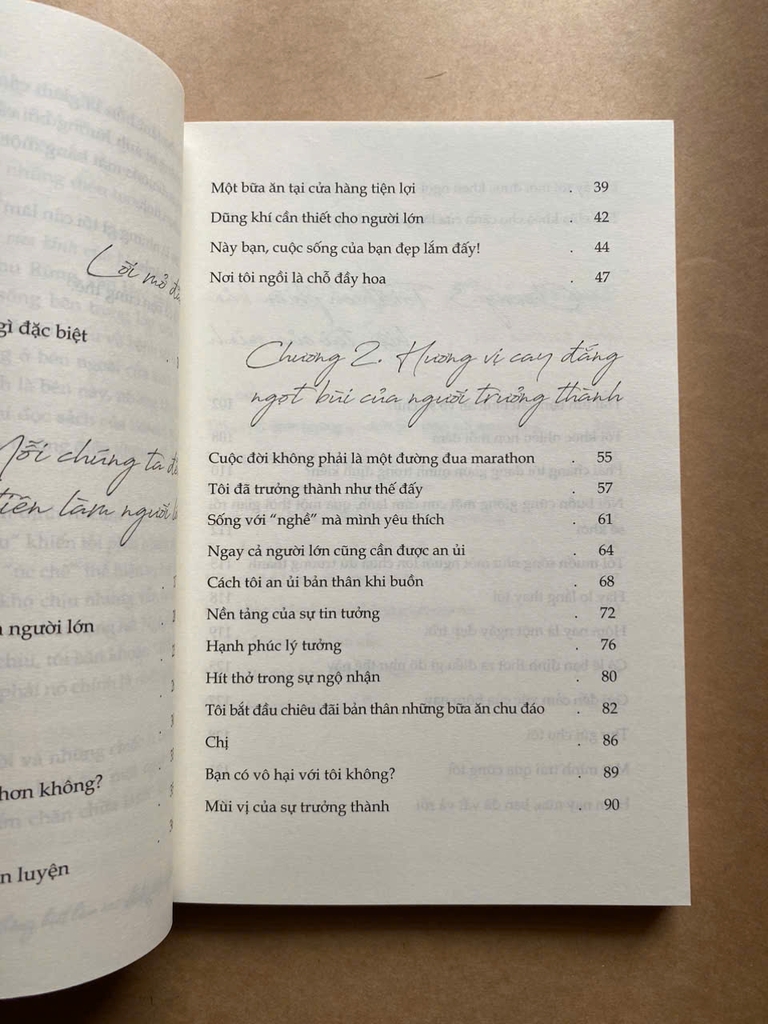 Lời mở
gì đặc biệt
Mỗi chúng ta
tiên làm người
n người lớn
hơn không?
n luyện
Một bữa ăn tại cửa hàng tiện lợi . 39
Dũng khí cần thiết cho người lớn . 42
Này bạn, cuộc sống của bạn đẹp lắm đấy! . 44
Nơi tôi ngồi là chỗ đầy hoa . 47
Chương 2. Hương vị cay đắng
ngọt bùi của người trưởng thành
Cuộc đời không phải là một đường đua marathon . 55
Tôi đã trưởng thành như thế đấy . 57
Sống với “nghề” mà mình yêu thích . 61
Ngay cả người lớn cũng cần được an ủi . 64
Cách tôi an ủi bản thân khi buồn . 68
Nền tảng của sự tin tưởng . 72
Hạnh phúc lý tưởng . 76
Hít thở trong sự ngộ nhận . 80
Tôi bắt đầu chiêu đãi bản thân những bữa ăn chu đáo . 82
Chị . 86
Bạn có vô hại với tôi không? . 89
Mùi vị của sự trưởng thành . 90